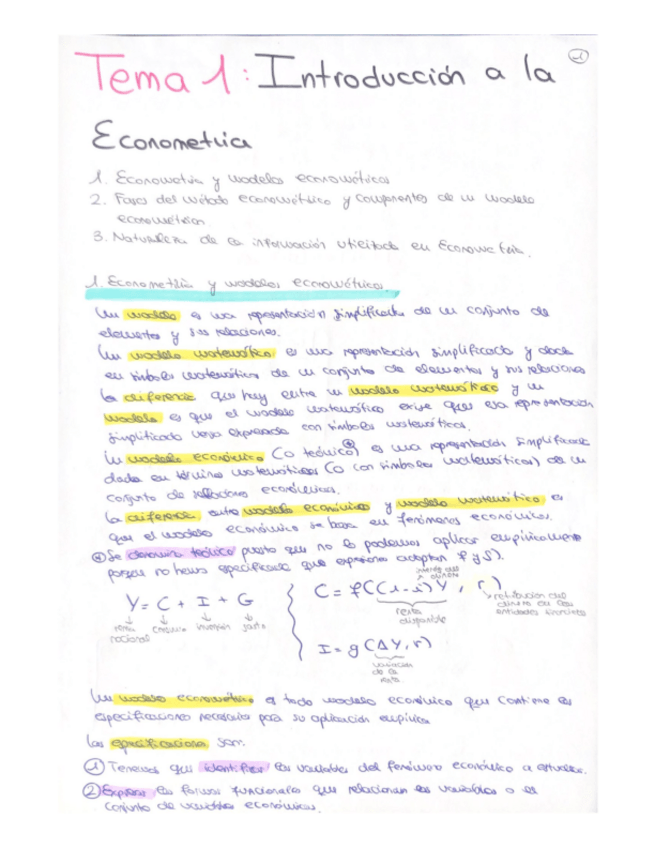 1
Tema 1: Introducción a la
Econometria
1. Econometria y modelos econométricos
2. Fases del método econométrico y componentes de un modelo
econométrico
3. Naturaleza de la información utilizada en Econometria.
1. Econometria y modelos econométricos.
Un modelo es una representación simplificada de un conjunto de
elementos y sus relaciones.
Un modelo matemático es una representación simplificada y dada
en símbolos matemáticos de un conjunto de elementos y sus relaciones
La diferencia que hay entre un modelo matemático y un
modelo es que el modelo matemático exige que esa representación
simplificada venga expresada con símbolos matemáticos.
Un modelo económico (o teórico)* es una representación simplificada
dada en términos matemáticos (o con símbolos matemáticos) de un
conjunto de relaciones económicas.
La diferencia entre modelo económico y modelo matemático es
que el modelo económico se basa en fenómenos económicos.
* Se denomina teórico puesto que no lo podemos aplicar empíricamente
porque no hemos especificado que expresiones adoptan f y g).
Y = C + I + G
renta nacional consumo inversión gasto
C = f((1-t)Y, r)
renta disponible
retribución del dinero en las entidades
I = g(ΔY, r)
variación de la renta
Un modelo econométrico es todo modelo económico que contiene las
especificaciones necesarias para su aplicación empírica
Las especificaciones son:
1 Tenemos que identificar las variables del fenómeno económico a estudiar.
2 Expresar las formas funcionales que relacionan las variables o el
conjunto de variables económicas.